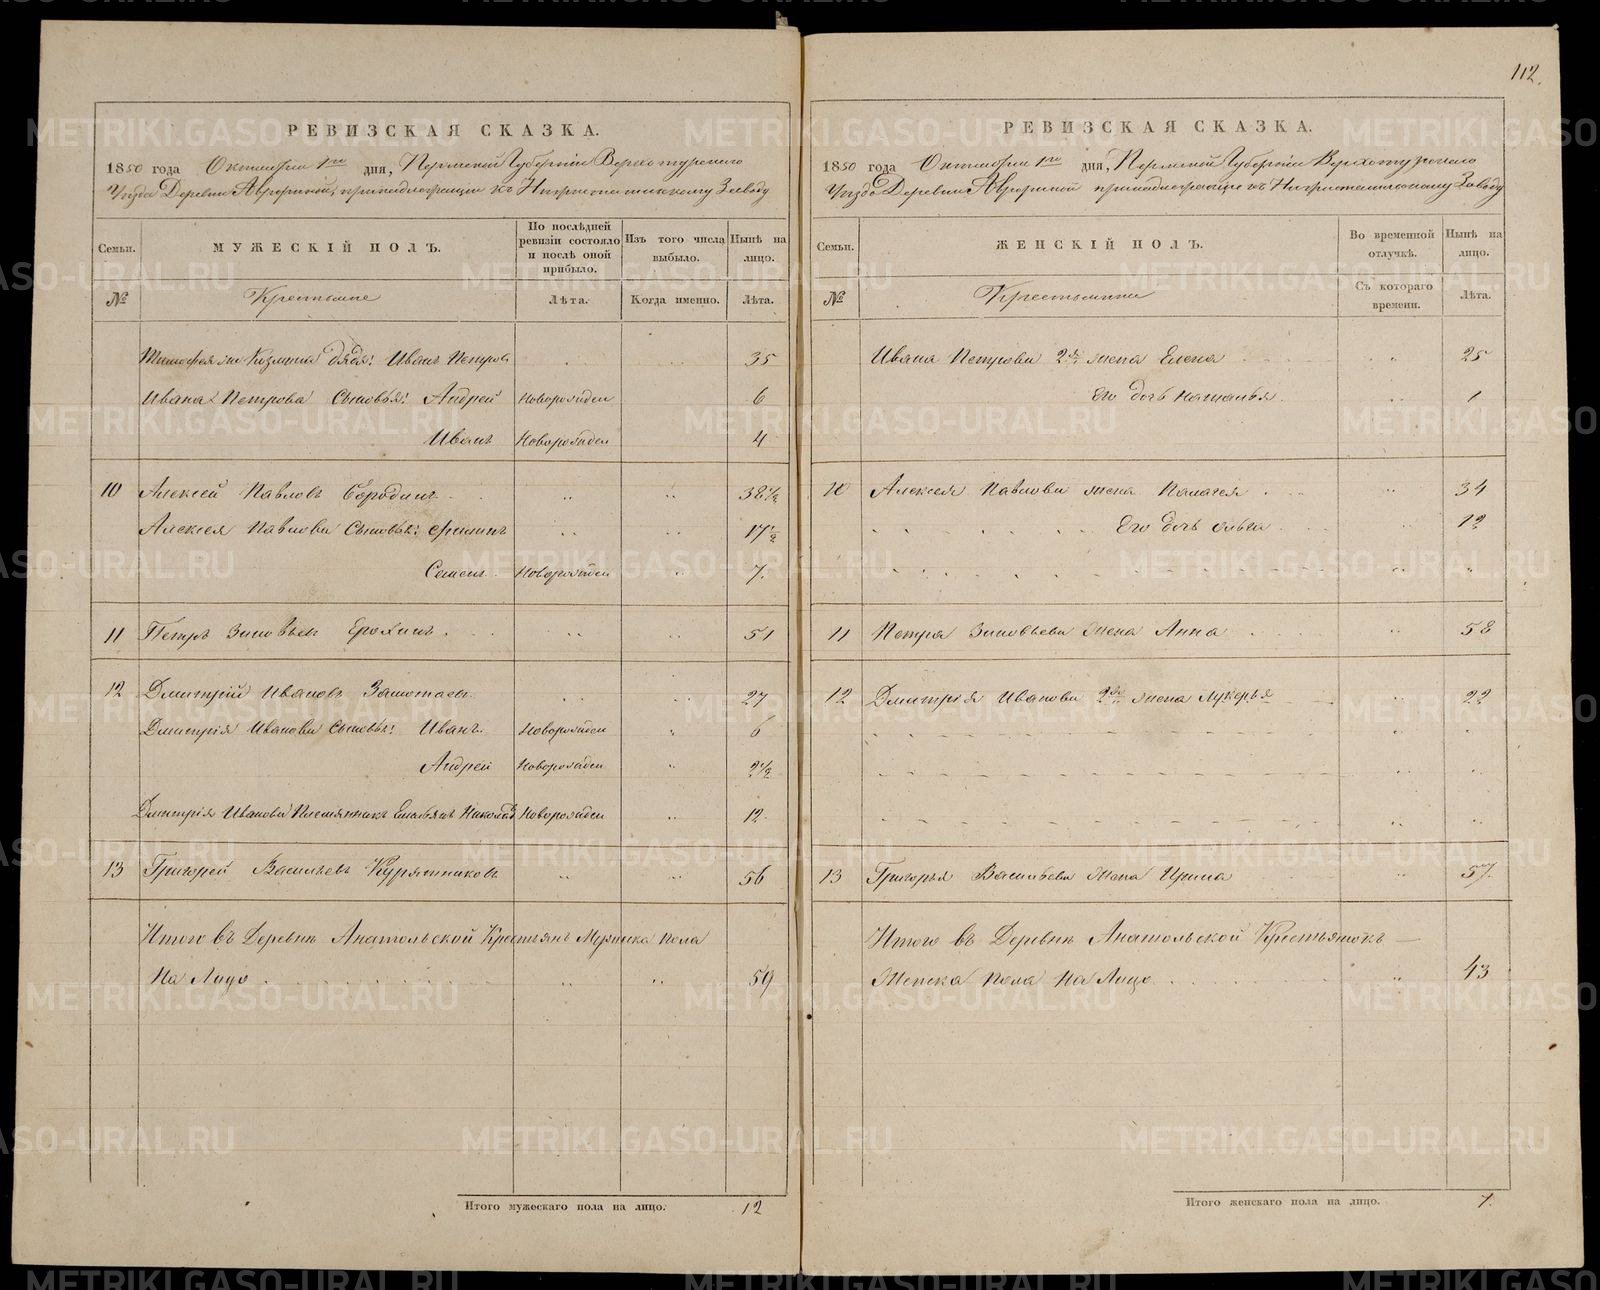 112.
РЕВИЗСКАЯ СКАЗКА.
1850 года Октября 1го дня, Пермской Губернiи Верхотурскаго
Уѣзда Деревни Авроринской, принадлежащей къ Нижнетагильскому Заводу
Семьи.
МУЖЕСКIЙ ПОЛЪ.
По послѣдней ревизiи состояло и послѣ оной прибыло.
Изъ того числа выбыло.
Нынѣ на лицо.
№
Крестьяне
Лѣта.
Когда именно.
Лѣта.
Козмина дядя: Иванъ Петровъ 35
Ивана Петрова Сыновья: Андрей Новорожден 6
Иванъ Новорожден 4
10 Алексей Павловъ Бородинъ 38 1/2
Алексея Павлова Сыновья: Филипъ 17 1/2
Семенъ Новорожден 7.
11 Петръ Зиновьевъ Ерохинъ 51
12 Дмитрiй Ивановъ 27
Дмитрiя Иванова Сыновья: Иванъ Новорожден 6
Андрей Новорожден 2 1/2
Дмитрiя Иванова Племянникъ Емельянъ Николаев Новорожден 12
13 Григорей Васильевъ Курятниковъ 56
Итого въ Деревнѣ Анатольской Крестьянъ Мужеска пола
На Лицо 59
Итого мужескаго пола на лицо. 12
РЕВИЗСКАЯ СКАЗКА.
1850 года Октября 1го дня, Пермской Губернiи Верхотурскаго
Уѣзда Деревни Авроринской принадлежащей къ Нижнетагильскому Заводу
Семьи.
ЖЕНСКIЙ ПОЛЪ.
Во временной отлучкѣ.
Нынѣ на лицо.
№
Крестьянки
Съ котораго времени.
Лѣта.
Ивана Петрова 2я жена Елена 25
Его дочь Наталья 1
10 Алексея Павлова жена Палагея 34
Его дочь Ольга 12
11 Петра Зиновьева жена Анна 58
12 Дмитрiя Иванова 2я жена Лукерья 22
13 Григорья Васильева жена Ирина 57.
Итого въ Деревнѣ Анатольской Крестьянокъ
Женска пола На Лицо 43
Итого женскаго пола на лицо. 7.
METRIKI.GASO-URAL.RU